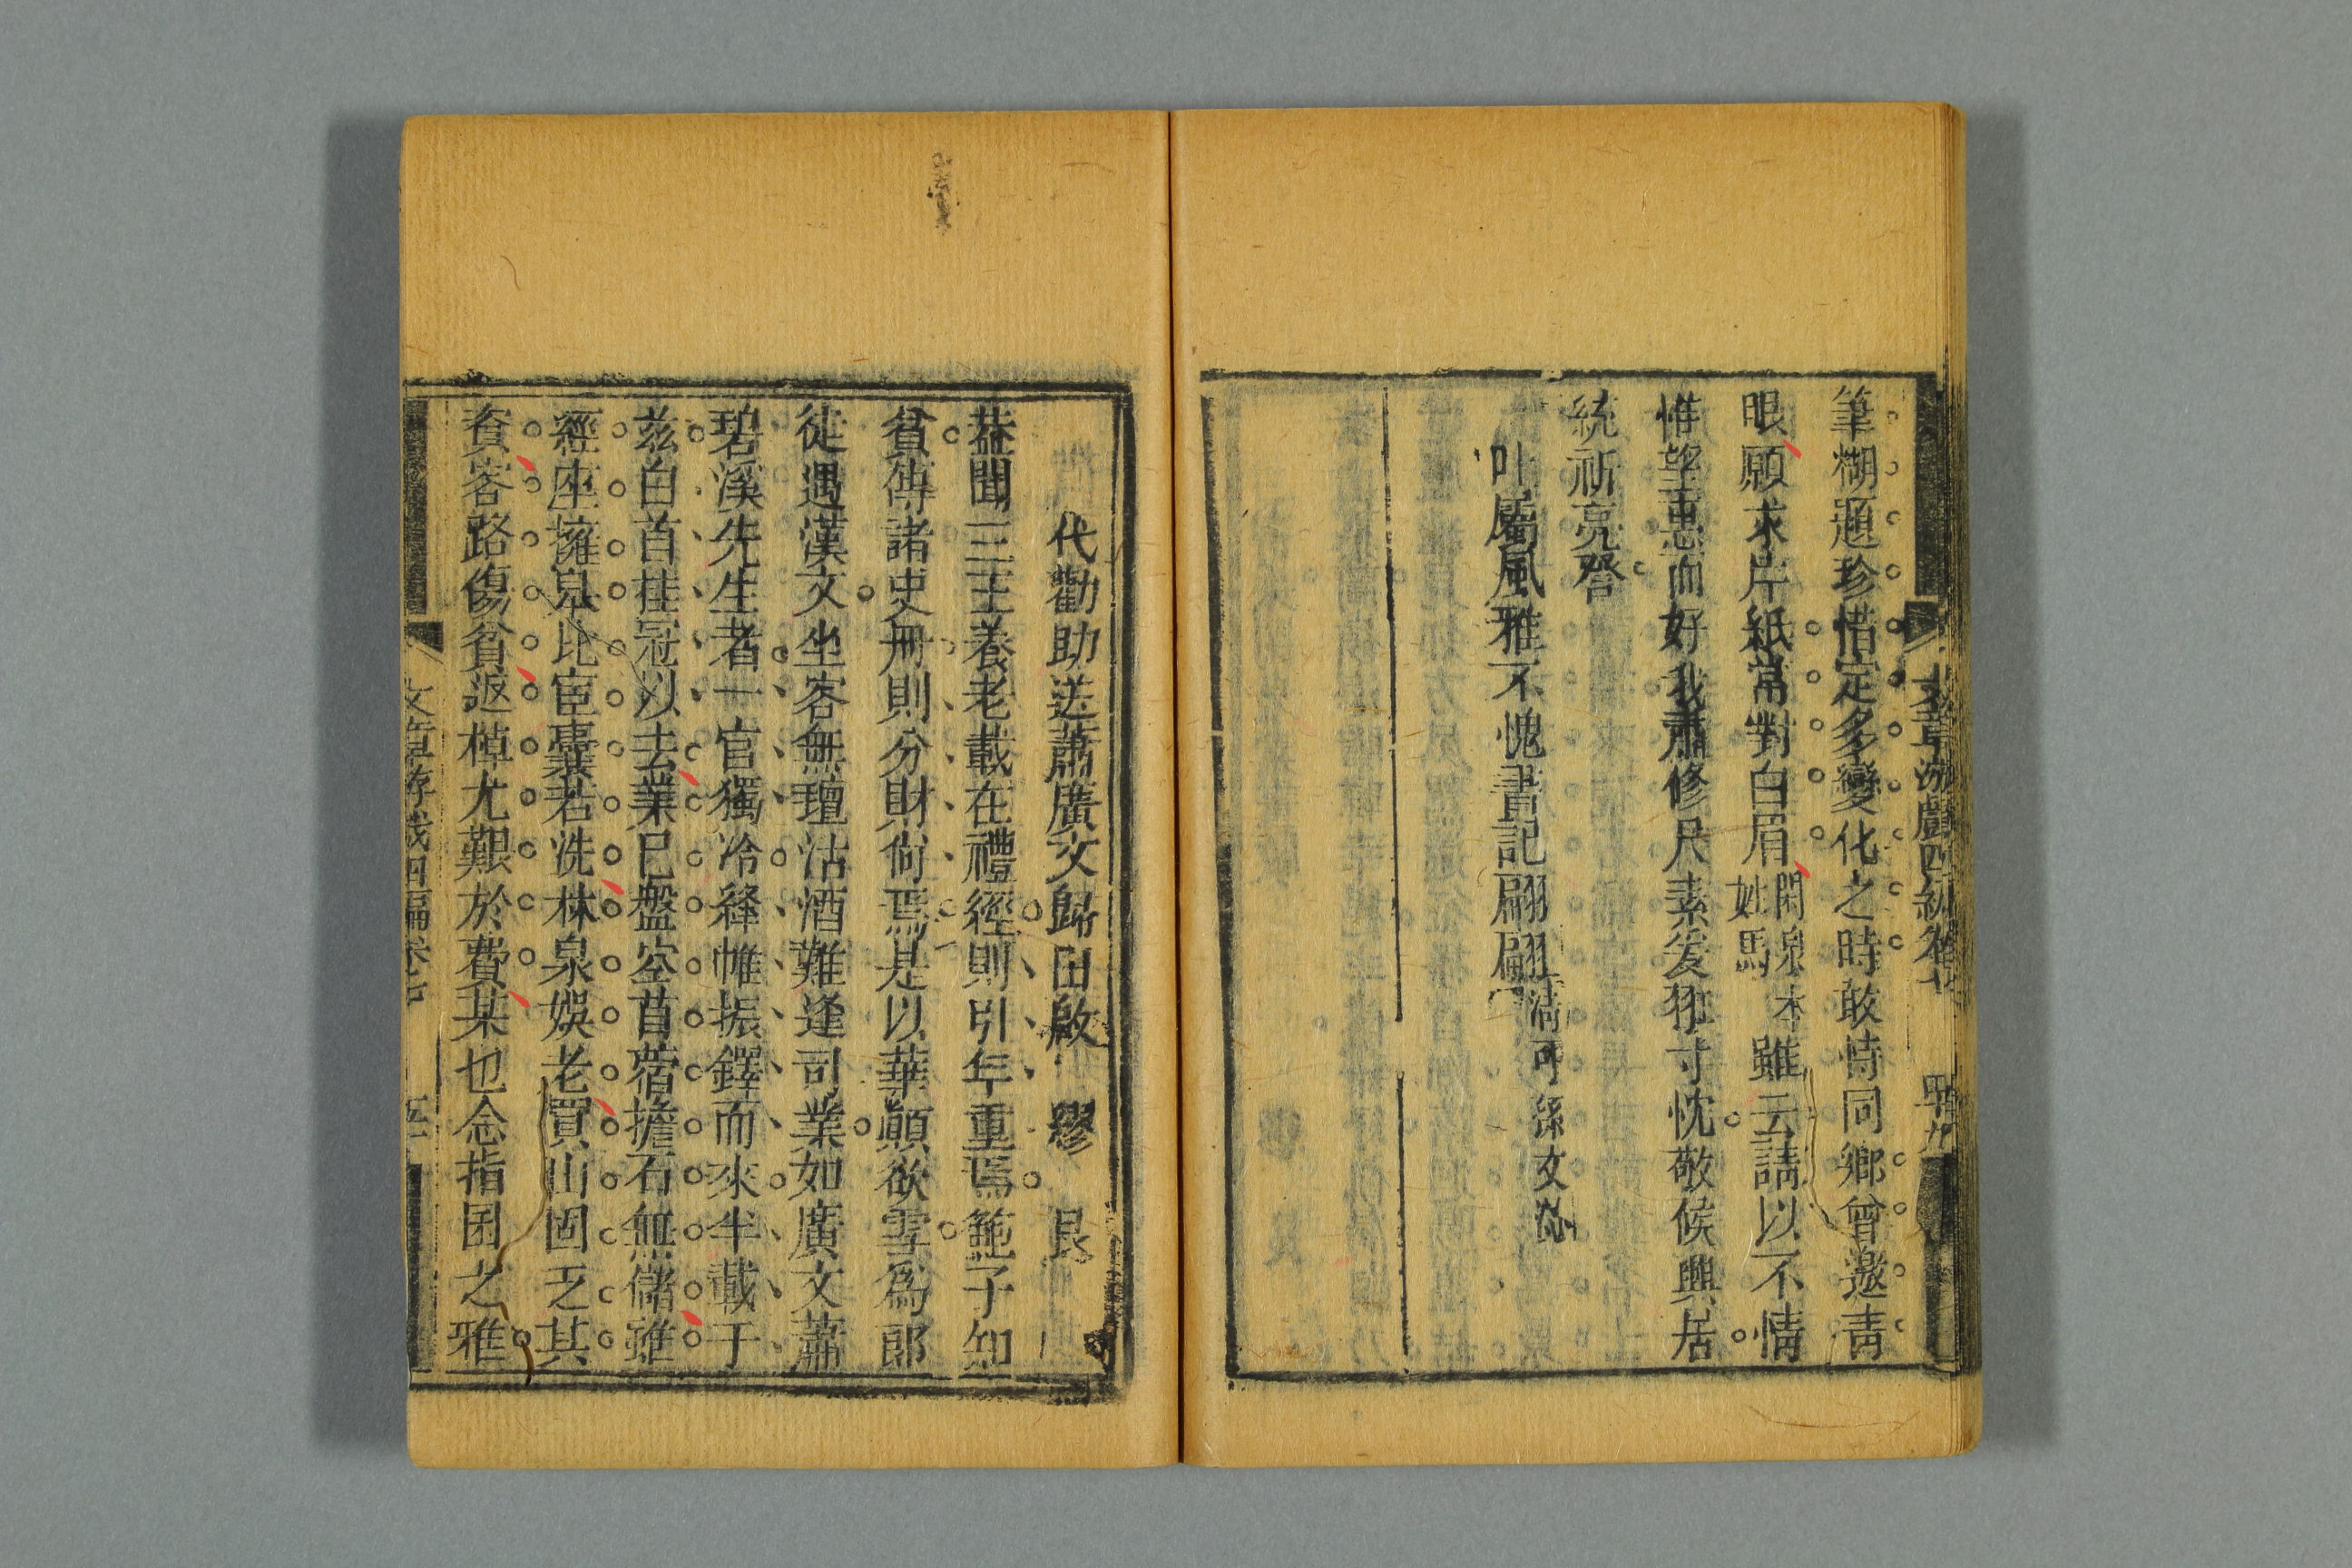 筆糊題珍惜定多變化之時敢恃同鄉曾邀青
眼願求片紙常對白眉閑泉本姓馬雖云請以不情
惟望惠而好我肅修尺素爰抒寸忱敬候興居
統祈亮詧
吐屬風雅不愧書記翩翩清可孫文
文章游戲四編卷七
四十九
代勸助送蕭廣文歸田啟 繆 艮
葢聞三王養老載在禮經則引年重焉範子知
貧傳諸史冊則分財尙焉是以華顛欲雪爲郎
徒遇漢文坐客無氊沽酒難逢司業如廣文蕭
碧溪先生者一官獨冷絳帷振鐸而來半載于
茲白首挂冠以去業已盤空苜蓿擔石無儲雖
經座擁臯比宦囊若洗林泉娛老買山固乏其
資客路傷貧返棹尤艱於費某也念指囷之雅
文章游戲四編卷七